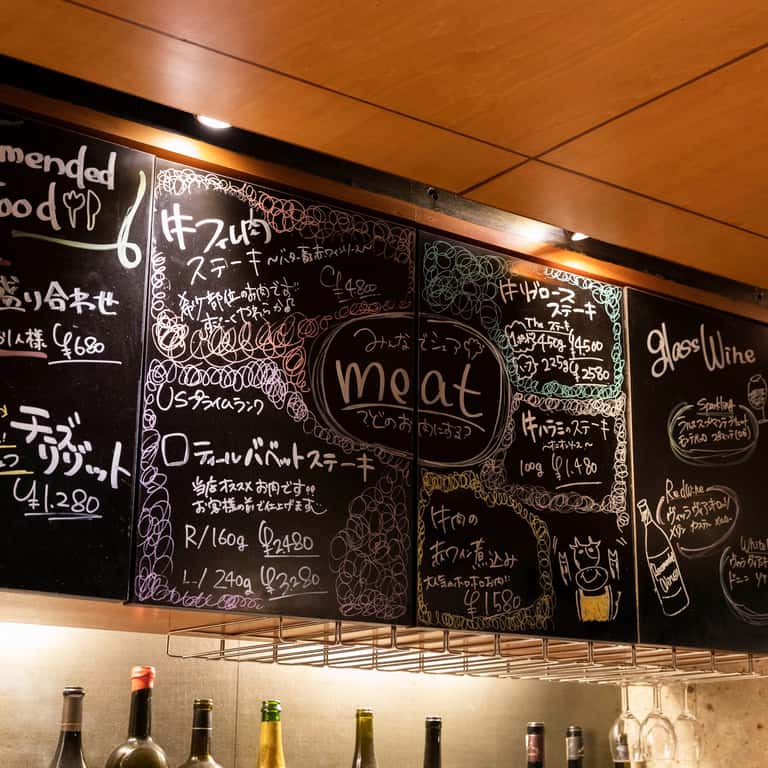 mended
ood
盛り合わせ
1人様 ¥680
チーズ
リゾット
¥1.280
牛フィレ肉
ステーキ
¥4.800
meat
みんなでシェア
どのお肉にする?
USプライムランク
ロティールバベットステーキ
当店オススメお肉です!!
お客様の前で仕上げます
R/160g ¥2480
L/240g ¥3280
牛リブロース
ステーキ
The ステーキ
450g ¥4.500
ハーフ 225g ¥2580
牛ハラミのステーキ
100g ¥1.480
牛肉の
赤ワイン煮込み
¥1580
glass Wine
Sparkling
Red wine
White